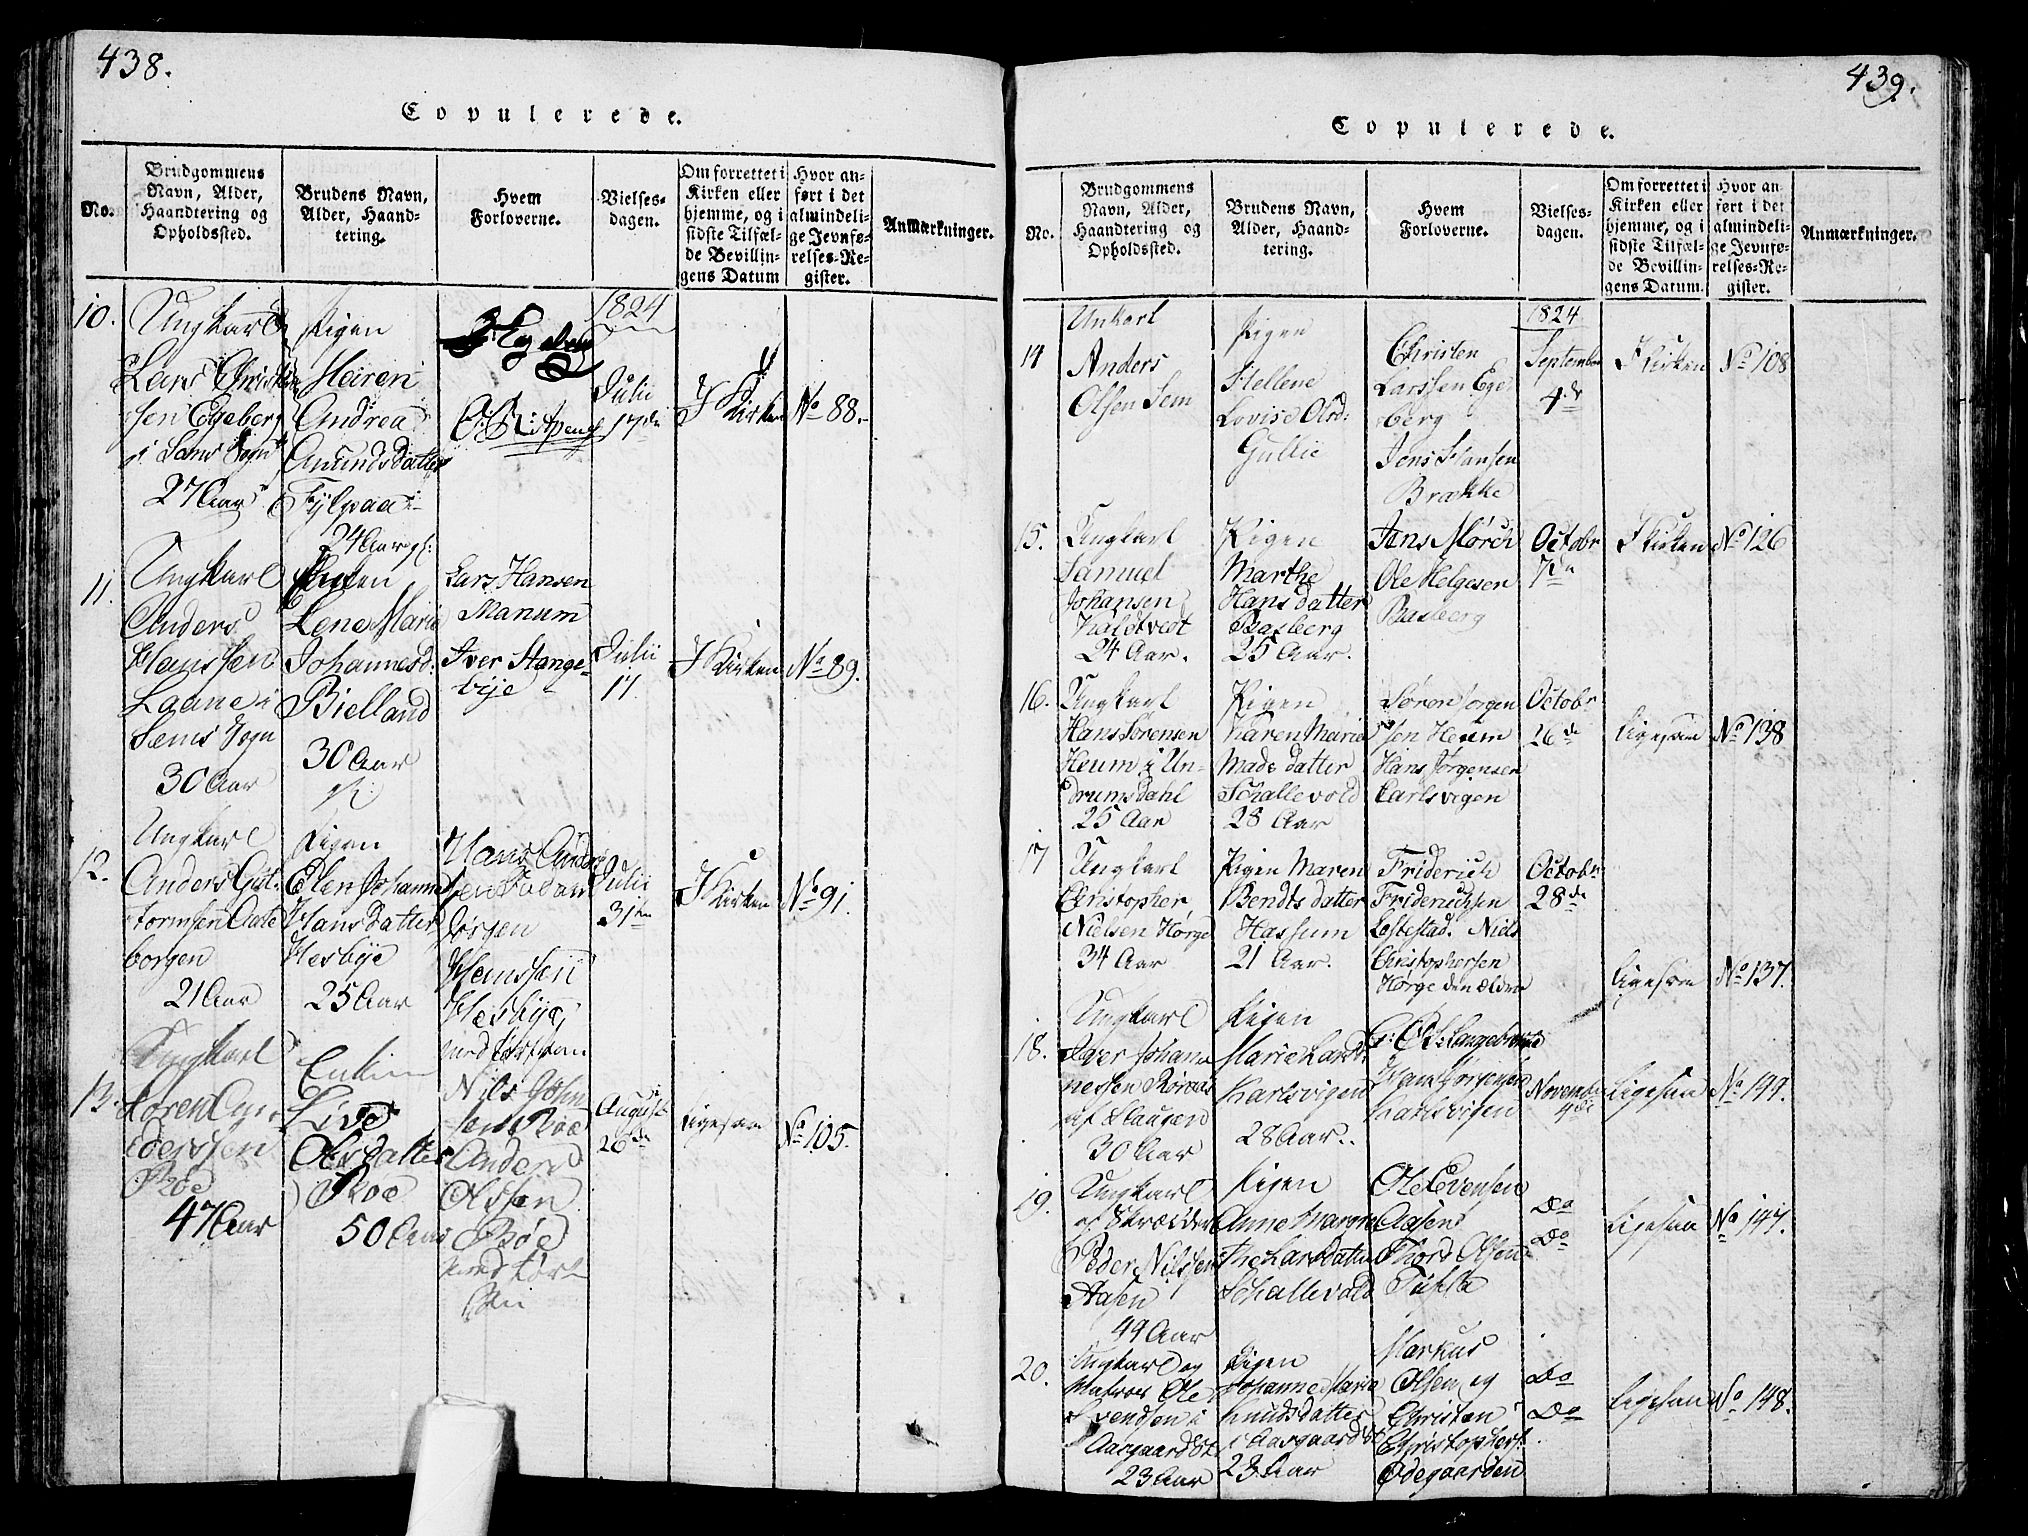 438.
Copulerede.
No.
Brudgommens
Navn, Alder,
Haandtering og
Opholdssted.
Brudens Navn,
Alder, Haand-
tering.
Hvem
Forloverne.
Vielses-
dagen.
Om forrettet i
Kirken eller
hjemme, og i
sidste Tilfæl-
de Bevillin-
gens Datum
Hvor an-
ført i det
almindeli-
ge Jevnfø-
relses-Re-
gister.
Anmærkninger.
10.
Ungkarl
Lars Christen
sen Egeberg
i Sems Sogn
27 Aar
Pigen
Maren
Andrea
Amunds datter
24 Aar
1824
Julii
17de
I Kirken
No 88.
11.
Ungkarl
Anders
Hanssen
Laane i
Sems Sogn
30 Aar
Pigen
Lene Marie
Johannesd.
Bielland
30 Aar
Lars Hansen
Manum
Iver Stange-
bye
Julii
17.
I Kirken
No 89.
12.
Ungkarl
Anders Gut-
tormsen Aale
borgen
21 Aar
Pigen
Elen Johanne
Hans datter
Hesbye
25 Aar
Hans Anders
Jørgen
Hanssen
Hesbye
Julii
31te
I Kirken
No 91.
13.
Ungkarl
Søren An-
dersen
Røe
47 Aar
Enken
Live
Olsdatter
Røe
50 Aar
Nils John
sen Røe
Anders
Olssen
Røe
August
26de
Ligesaa
No 105.
439.
Copulerede.
No.
Brudgommens
Navn, Alder,
Haandtering og
Opholdssted.
Brudens Navn,
Alder, Haand-
tering.
Hvem
Forloverne.
Vielses-
dagen.
Om forrettet i
Kirken eller
hjemme, og i
sidste Tilfæl-
de Bevillin-
gens Datum.
Hvor an
ført i det
almindeli-
ge Jevnfø-
relses-Re-
gister.
Anmærkninger.
14
Unkarl
Anders
Olsen Sem
Pigen
Hellene
Lovise Olsd:
Gullie
Christen
Larssen Ege
berg
Jens Hansen
Brække
1824
September
4de
I Kirken
No 108
15.
Ungkarl
Samuel
Johansen
24 Aar.
Pigen
Marthe
Hans datter
Basberg
25 Aar.
Jens Mørch
Ole Helgesen
Basberg
Octobr
7de
I Kirken
No 126
16.
Ungkarl
Hans Sørensen
Heum i Un-
drumsdahl
25 Aar
Pigen
Karen Marie
Mads datter
Schallevold
28 Aar
Søren Jørgen
sen Heum
Hans Jørgensen
Carlsvigen
Octobr
26de
Ligesaa
No 138
17
Ungkarl
Christopher
Nielsen Hørge
34 Aar
Pigen Maren
Bendts datter
Hassum
21 Aar.
Friderich
Friderichsen
Løstestad. Niels
Christophersen
Hørge den Ældre
Octobr
28de
Ligesaa
No 137.
18.
Ungkarl
Iver Johan
nessen
30 Aar
Pigen
Marie Larsd.
Karlsvigen
28 Aar.
Hans Jørgensen
Karlsvigen
November
4de
Ligesaa
No 144.
19.
Ungkarl
og Skrædder
Peder Nilssen
Aasen
44 Aar
Pigen
Anne Margre
the Larsdatter
Schallevold
Ole Evensen
Aasen
Thord Olsen
Tufta
Do
Do
Ligesaa
No 147.
20.
Ungkarl og
Matros Ole
Svendsen i
Aasgaardst.
23 Aar
Pigen
Johanne Marie
Knudsdatter
i Aasgaardst.
23 Aar
Markus
Olsen og
Christen
Christophers.
Ødegaarden
Do
Do
Ligesaa
No 148.